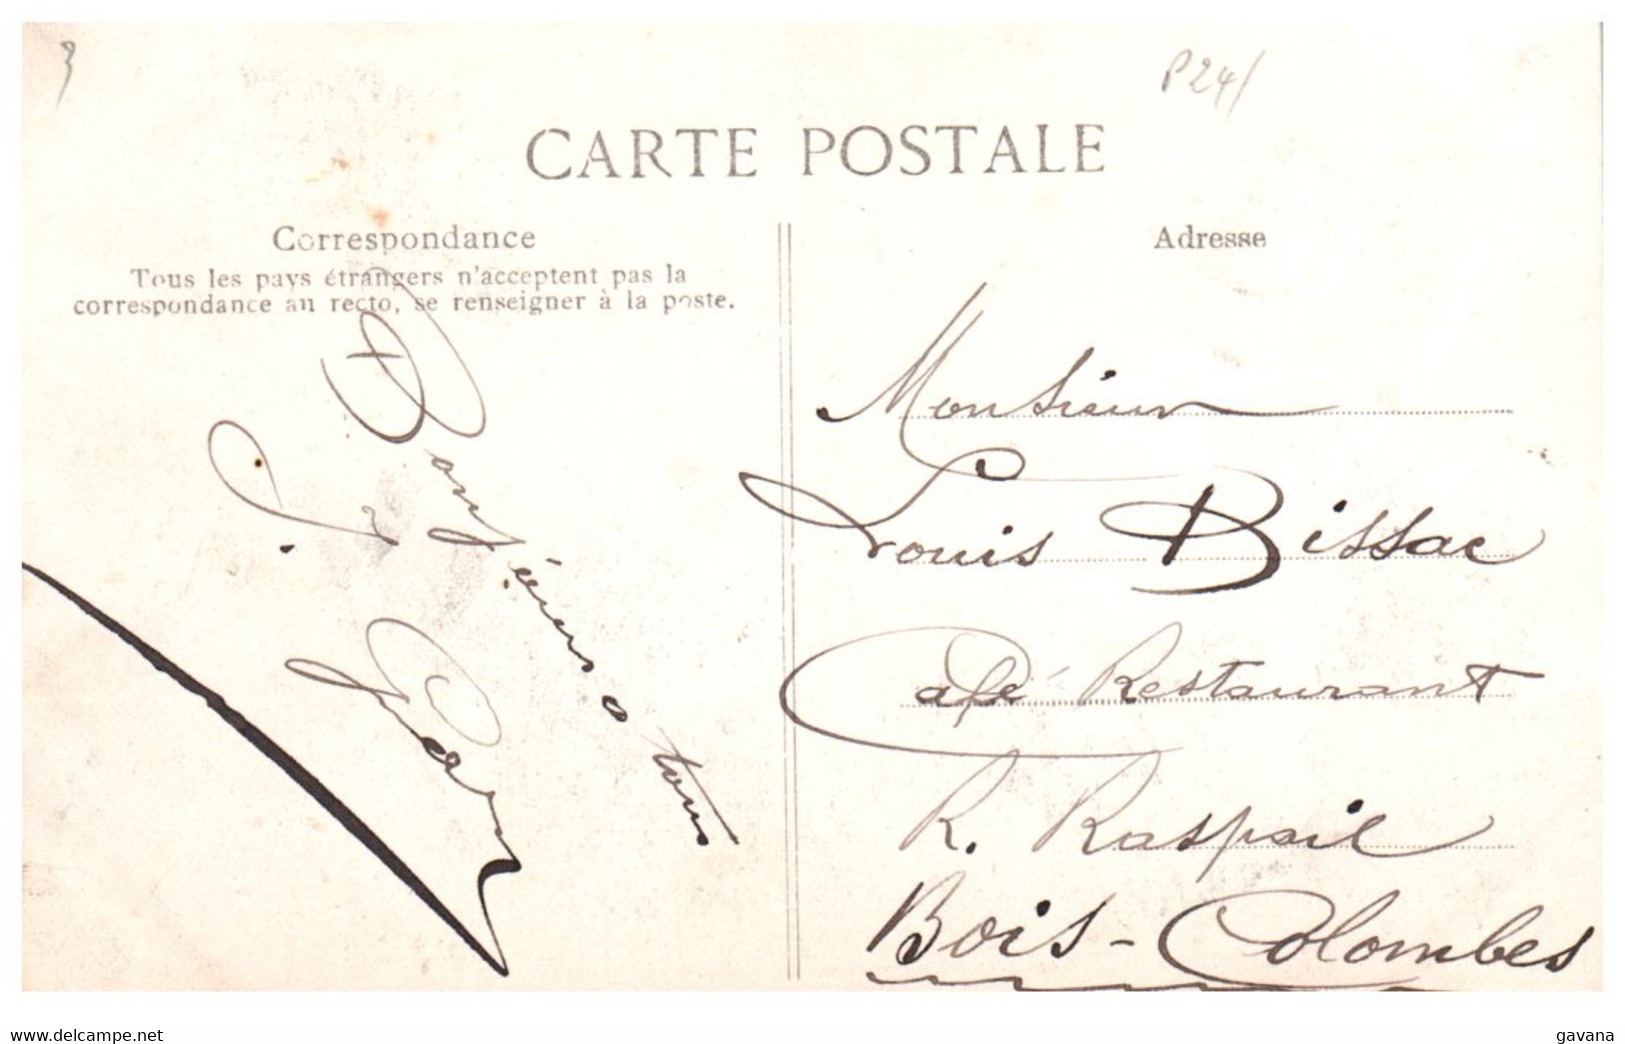 3
P24/
CARTE POSTALE
Correspondance
Tous les pays étrangers n'acceptent pas la
correspondance au recto, se renseigner à la poste.
Adresse
à tous
Monsieur
Louis Bissac
Café Restaurant
R. Raspail
Bois-Colombes
delcampe.net
gavana